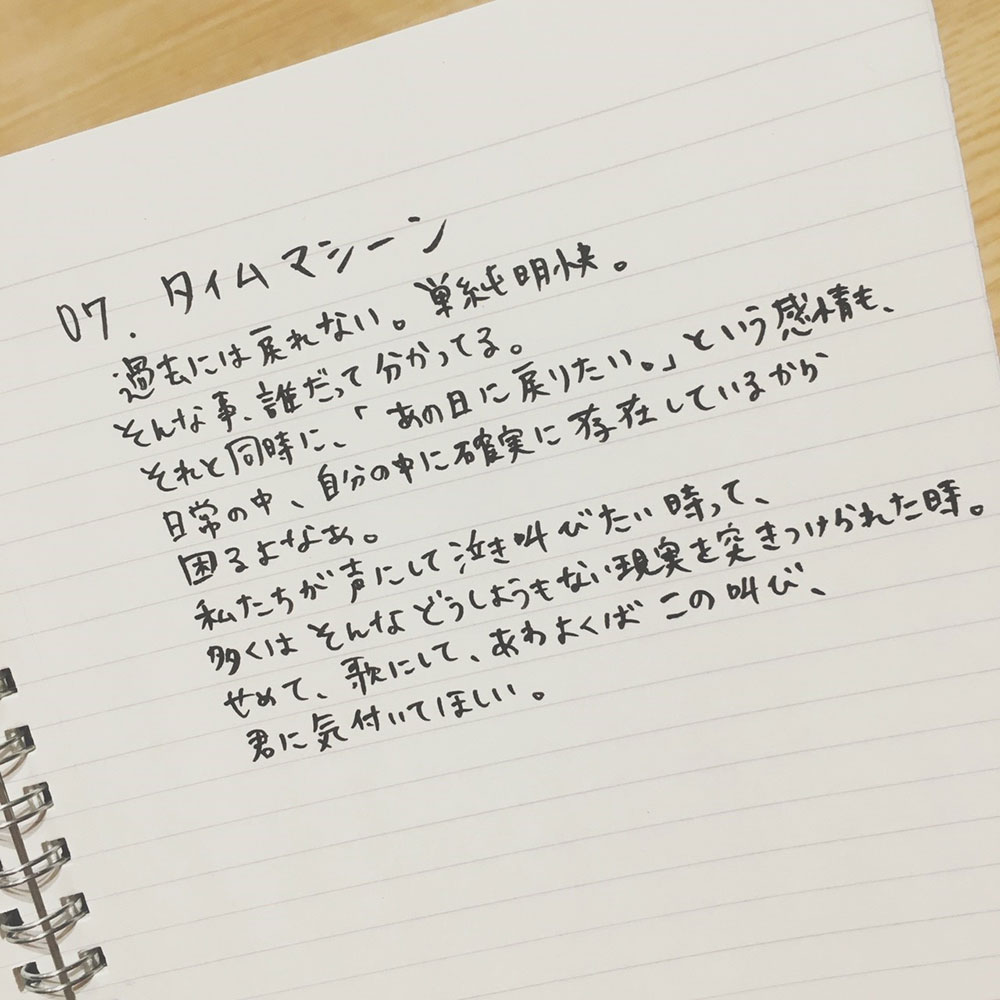 07. タイムマシーン
過去には戻れない。単純明快。
そんな事、誰だって分かってる。
それと同時に、「あの日に戻りたい。」という感情も、
日常の中、自分の中に確実に存在しているから
困るよなぁ。
私たちが声にして泣き叫びたい時って、
多くはそんなどうしようもない現実を突きつけられた時。
せめて、歌にして、あわよくばこの叫び、
君に気付いてほしい。